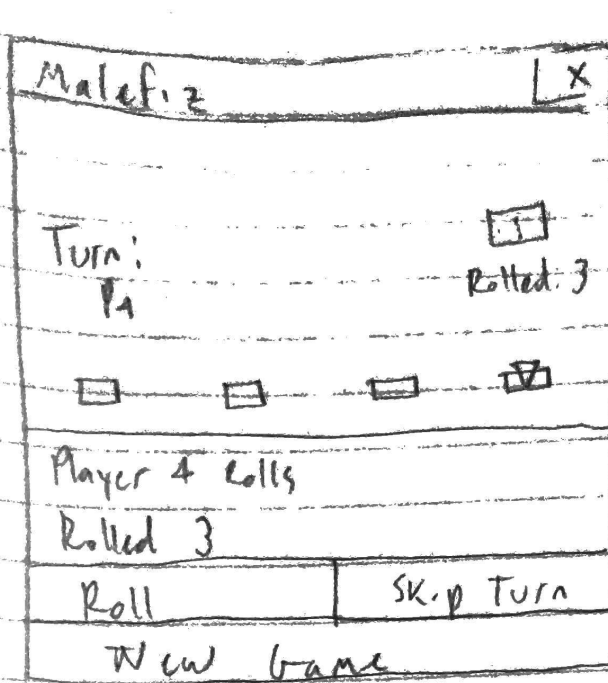 Malefiz X
Turn:
P4
Rolled: 3
Player 4 Rolls
Rolled 3
Roll
Skip Turn
New Game